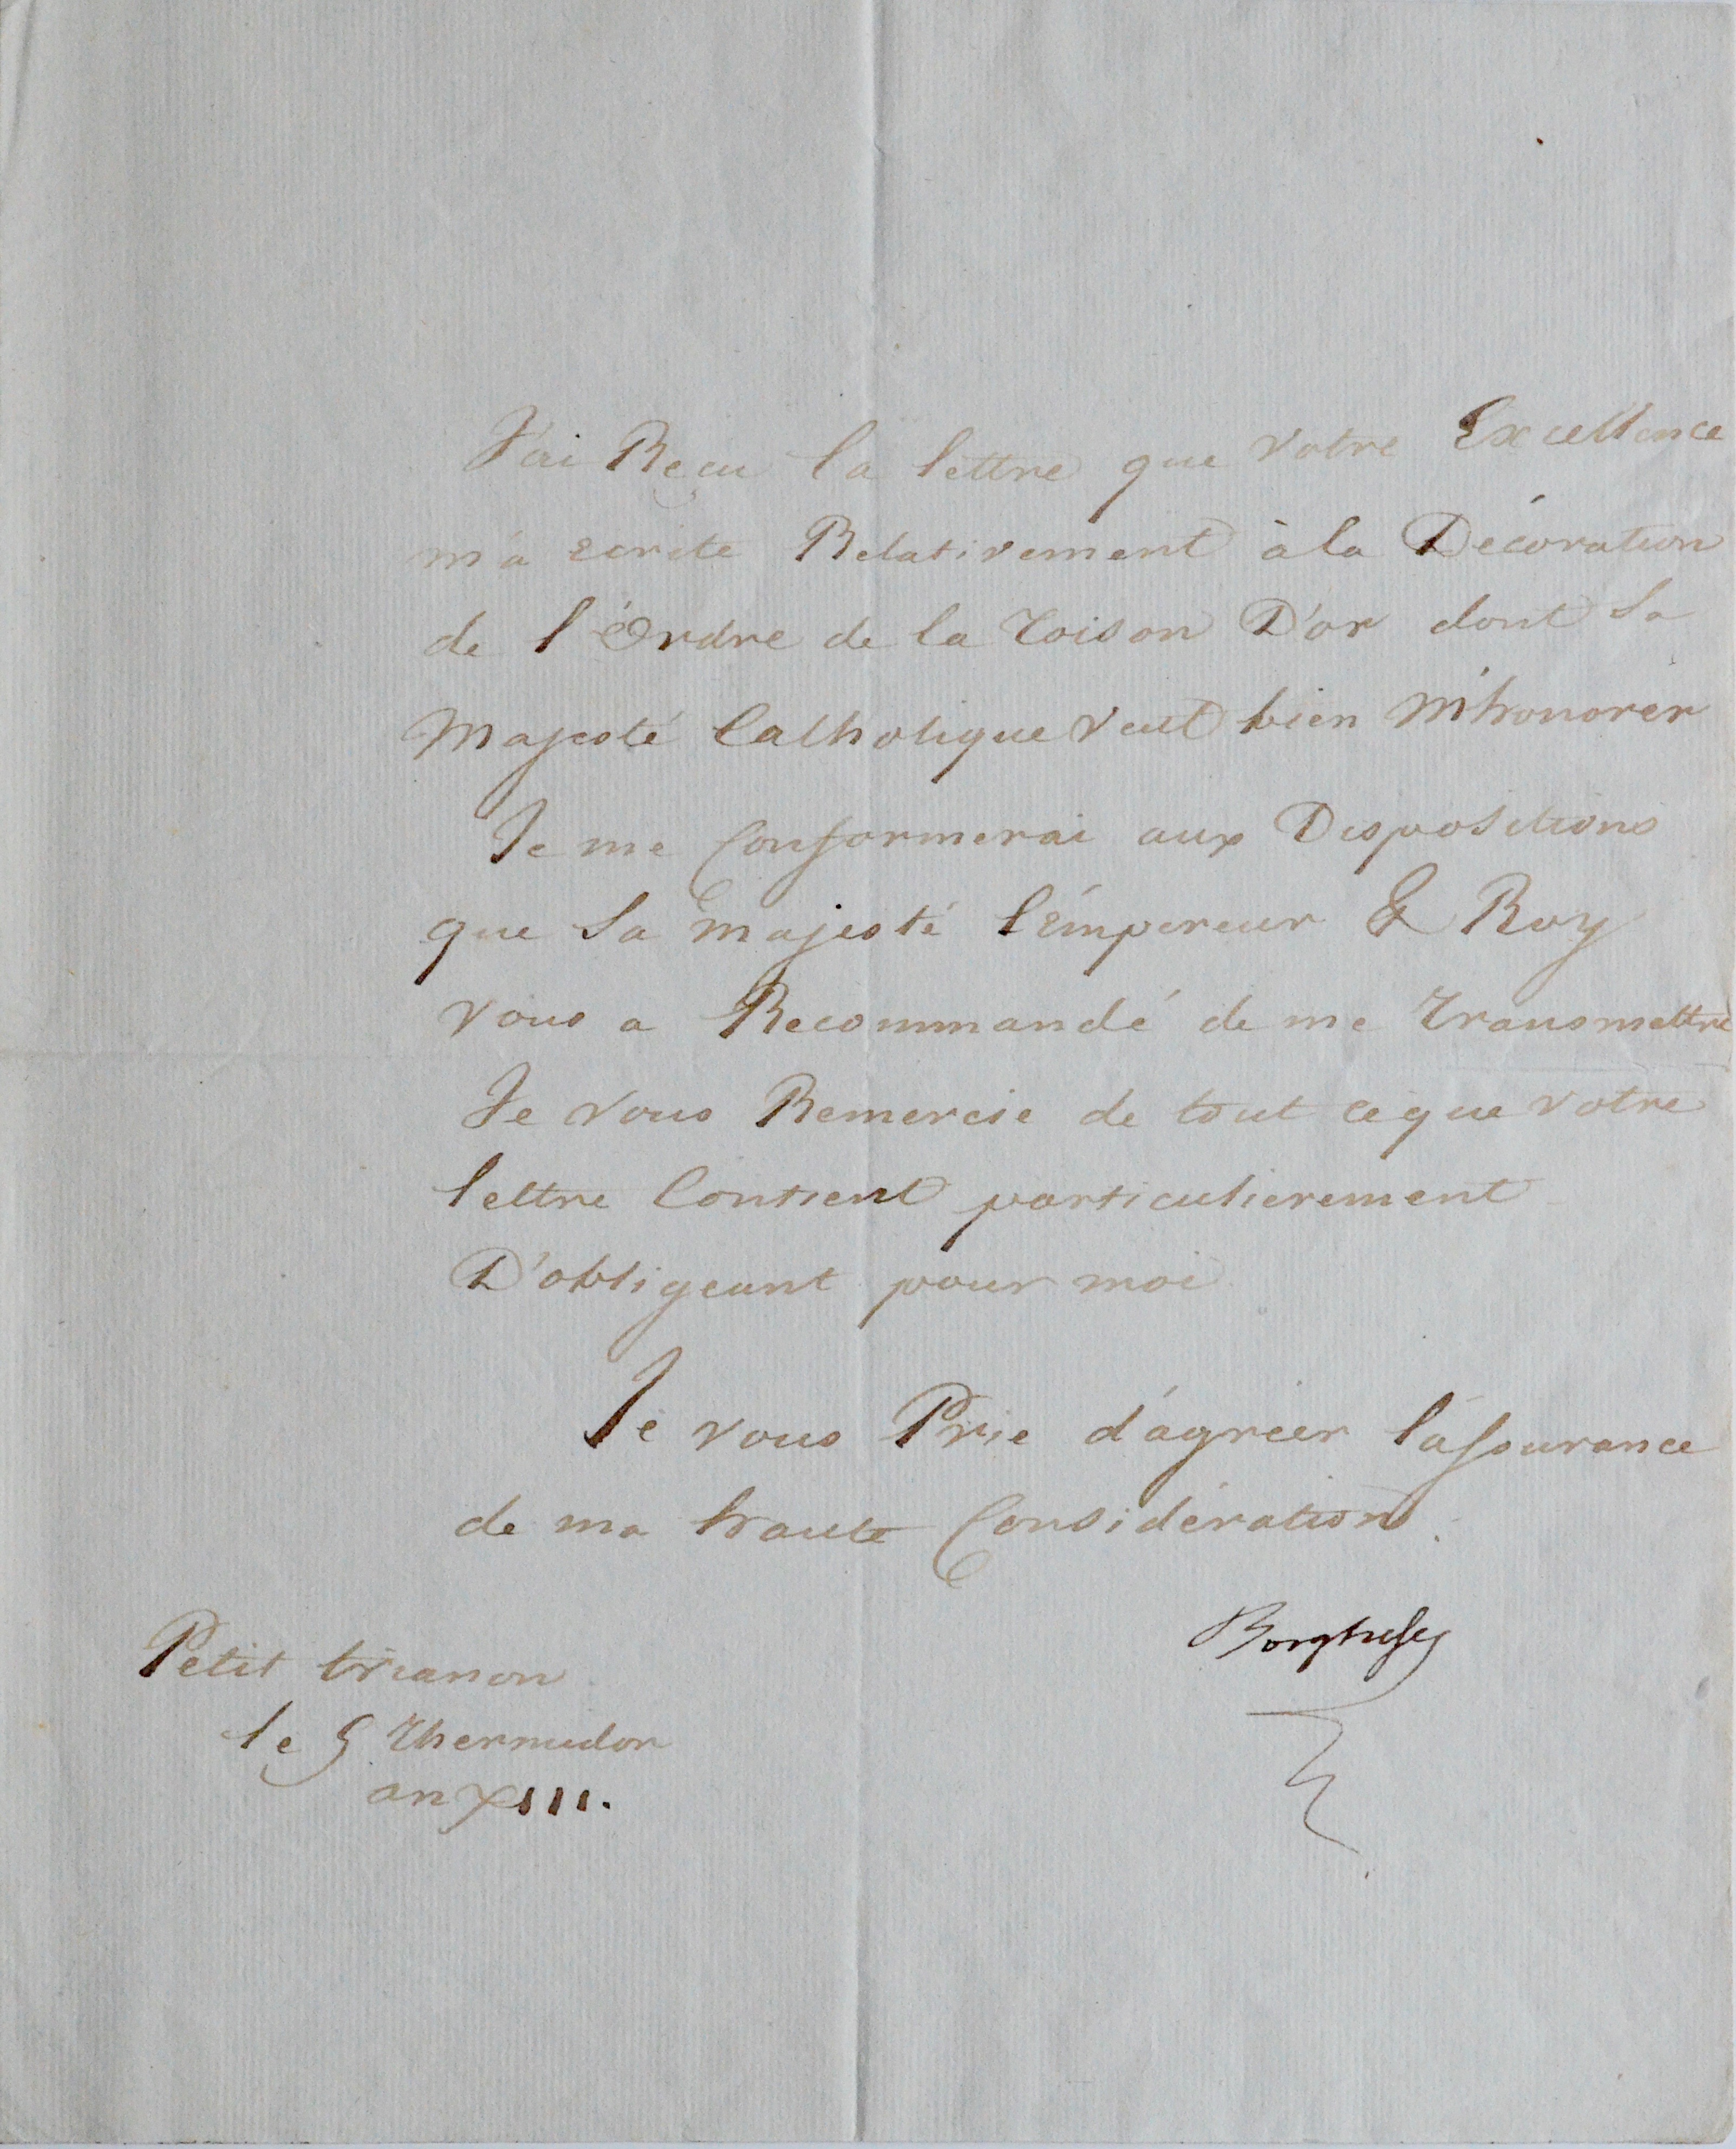 J'ai Reçu la lettre que Votre Excellence
m'a ecrite Relativement à la Décoration
de l'Ordre de la Toison D'or dont Sa
Majesté Catholique Veut bien M'honorer
Je me Conformerai aux Dispositions
que Sa Majesté l'Empereur & Roy
vous a Recommandé de me Transmettre
Je Vous Remercie de tout ce que Votre
lettre Contient particulierement
D'obligeant pour moi
Je vous Prie d'agréer l'assurance
de ma haute Considération.
Borghese
Petit trianon
le Thermidor
an XIII.